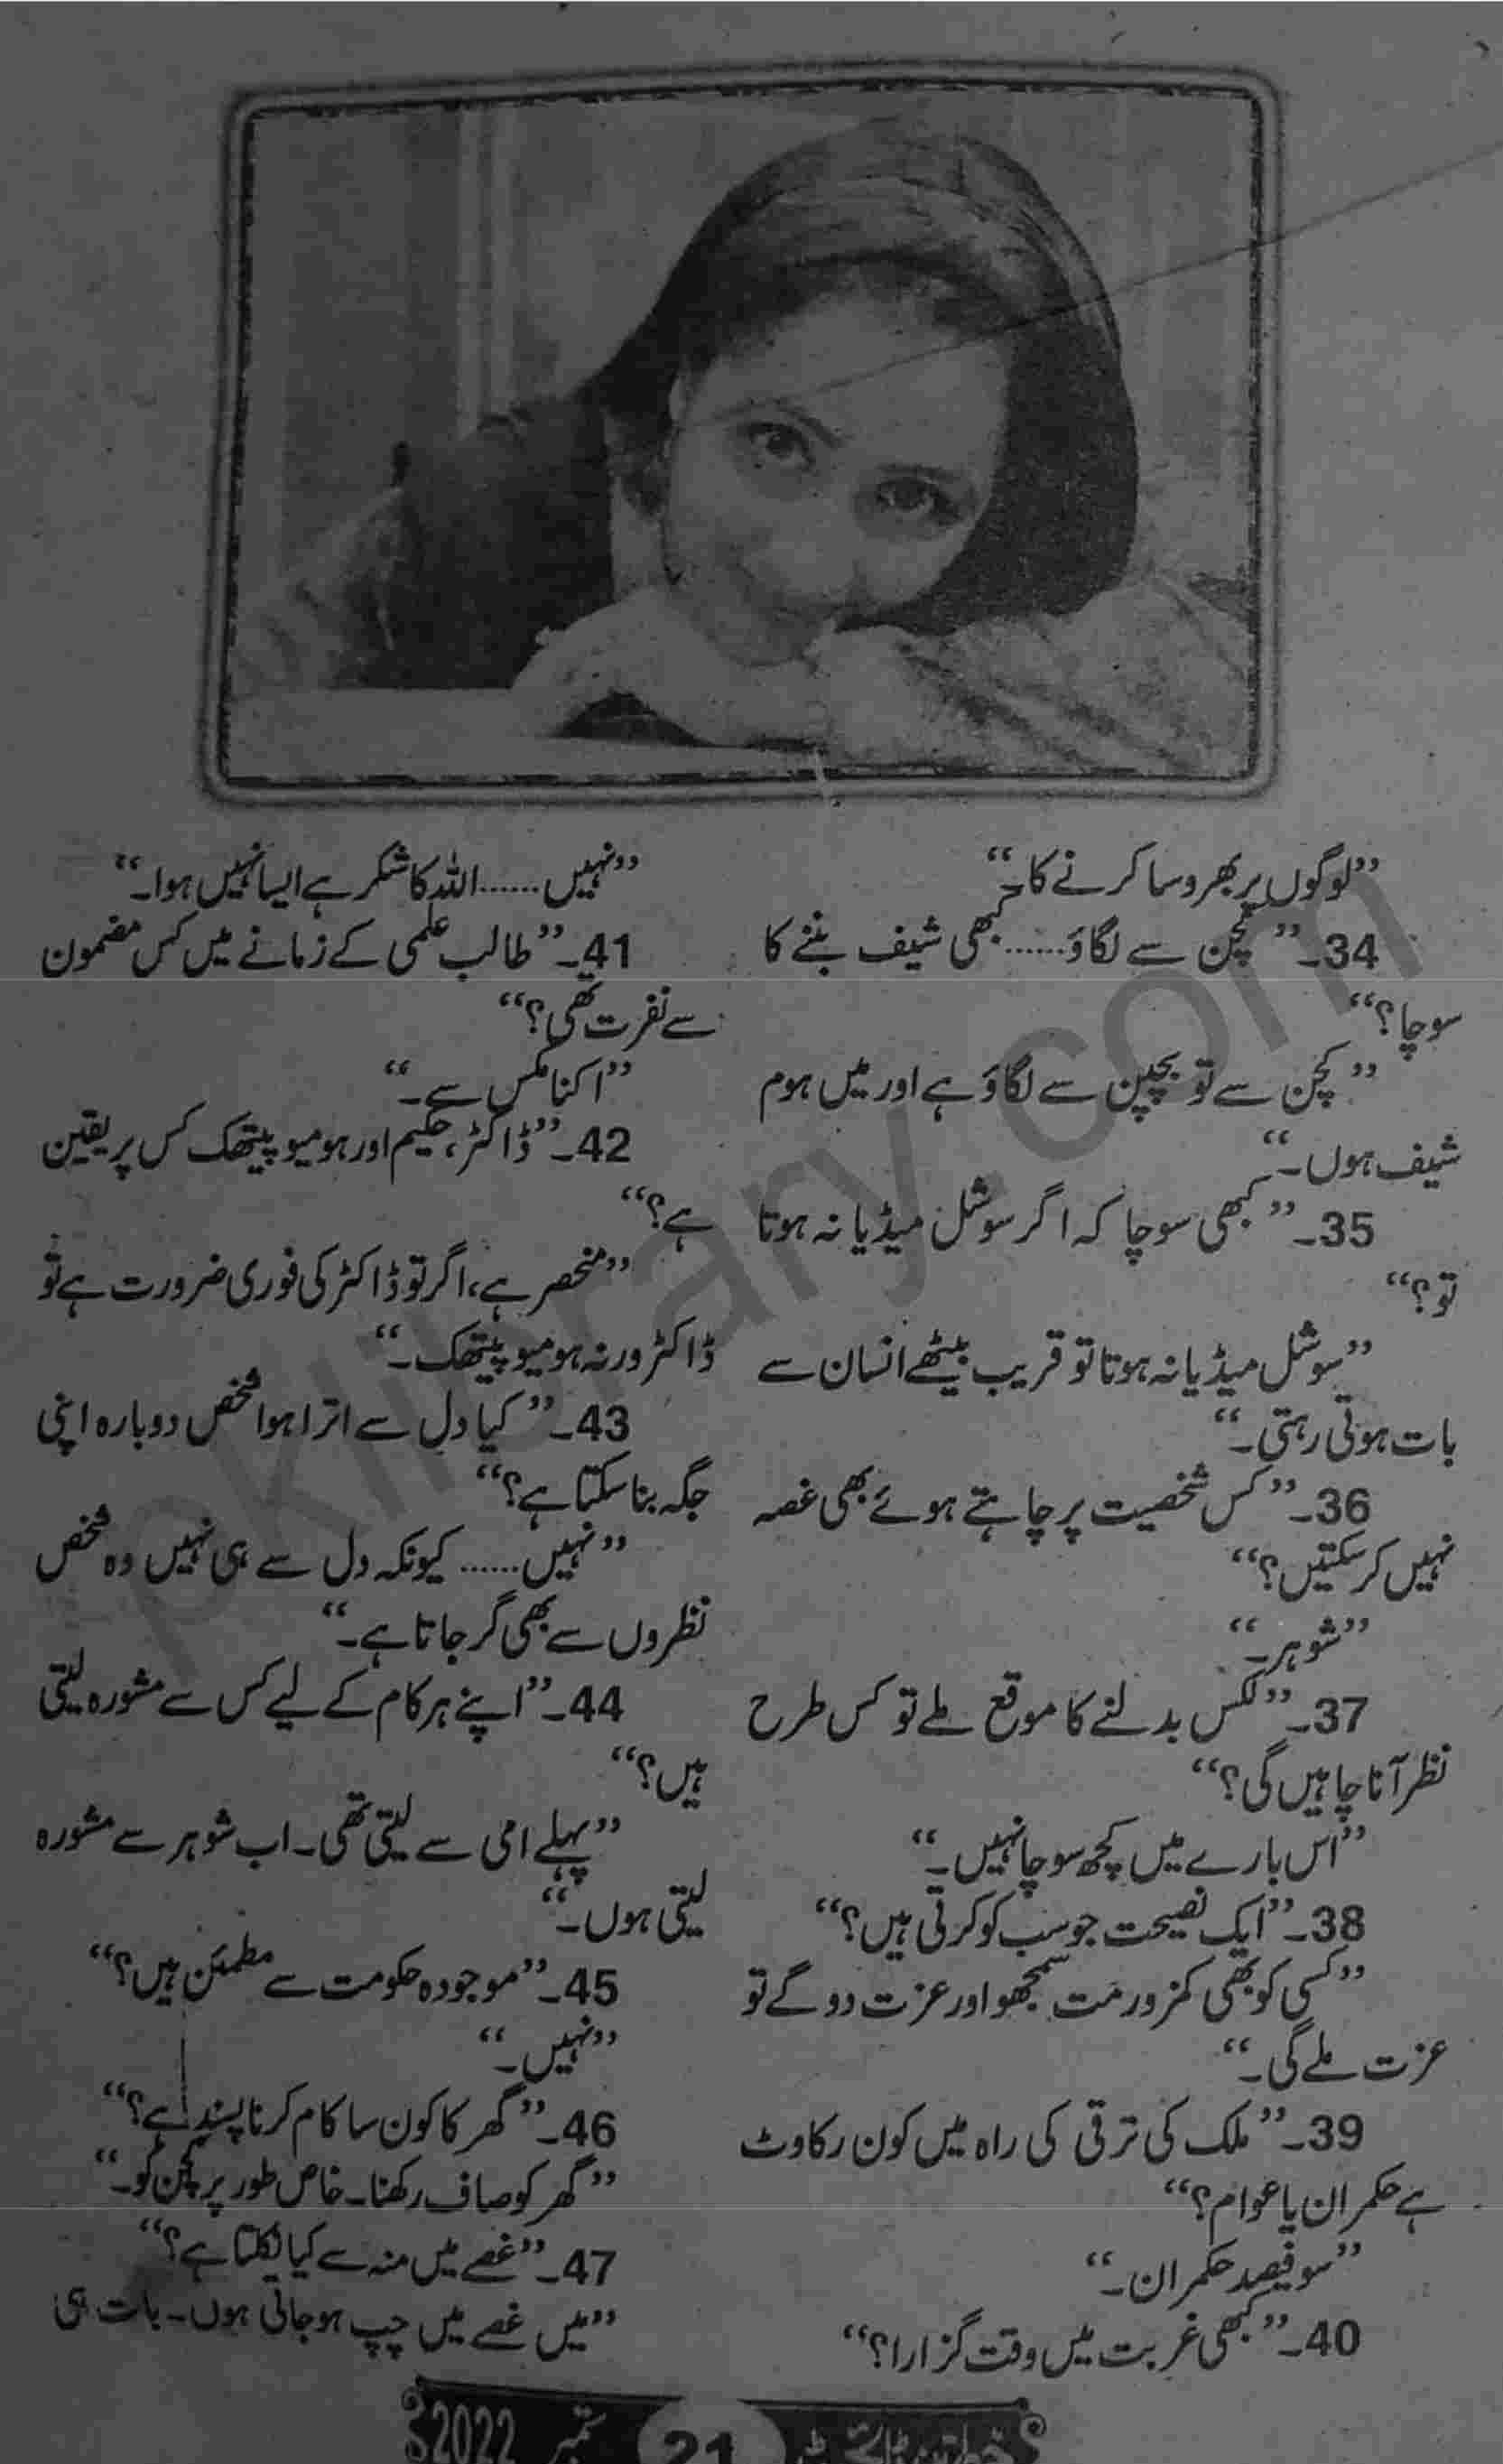 ”لوگوں پر بھروسا کرنے کا۔“
34۔ ”کچن سے لگاؤ...... کبھی شیف بننے کا
سوچا؟“
”کچن سے تو بچپن سے لگاؤ ہے اور میں ہوم
شیف ہوں۔“
35۔ ”کبھی سوچا کہ اگر سوشل میڈیا نہ ہوتا
تو؟“
”سوشل میڈیا نہ ہوتا تو قریب بیٹھے انسان سے
بات ہوتی رہتی۔“
36۔ ”کس شخصیت پر چاہتے ہوئے بھی غصہ
نہیں کرسکتیں؟“
”شوہر۔“
37۔ ”لکس بدلنے کا موقع ملے تو کس طرح
نظر آنا چاہیں گی؟“
”اس بارے میں کچھ سوچا نہیں۔“
38۔ ”ایک نصیحت جو سب کو کرتی ہیں؟“
”کسی کو بھی کمزور مت سمجھو اور عزت دو گے تو
عزت ملے گی۔“
39۔ ”ملک کی ترقی کی راہ میں کون رکاوٹ
ہے حکمران یا عوام؟“
”سو فیصد حکمران۔“
40۔ ”کبھی غربت میں وقت گزارا؟“
”نہیں...... اللہ کا شکر ہے ایسا نہیں ہوا۔“
41۔ ”طالب علمی کے زمانے میں کس مضمون
سے نفرت تھی؟“
”اکنامکس سے۔“
42۔ ”ڈاکٹر، حکیم اور ہومیو پیتھک کس پر یقین
ہے؟“
”منحصر ہے، اگر تو ڈاکٹر کی فوری ضرورت ہے تو
ڈاکٹر ورنہ ہومیو پیتھک۔“
43۔ ”کیا دل سے اترا ہوا شخص دوبارہ اپنی
جگہ بنا سکتا ہے؟“
”نہیں...... کیونکہ دل سے ہی نہیں وہ شخص
نظروں سے بھی گر جاتا ہے۔“
44۔ ”اپنے ہر کام کے لیے کس سے مشورہ لیتی
ہیں؟“
”پہلے امی سے لیتی تھی۔ اب شوہر سے مشورہ
لیتی ہوں۔“
45۔ ”موجودہ حکومت سے مطمئن ہیں؟“
”نہیں۔“
46۔ ”گھر کا کون سا کام کرنا پسند ہے؟“
”گھر کو صاف رکھنا۔ خاص طور پر کچن کو۔“
47۔ ”غصے میں منہ سے کیا نکلتا ہے؟“
”میں غصے میں چپ ہو جاتی ہوں۔ بات ہی
21 ستمبر 2022ء
pklibrary.com